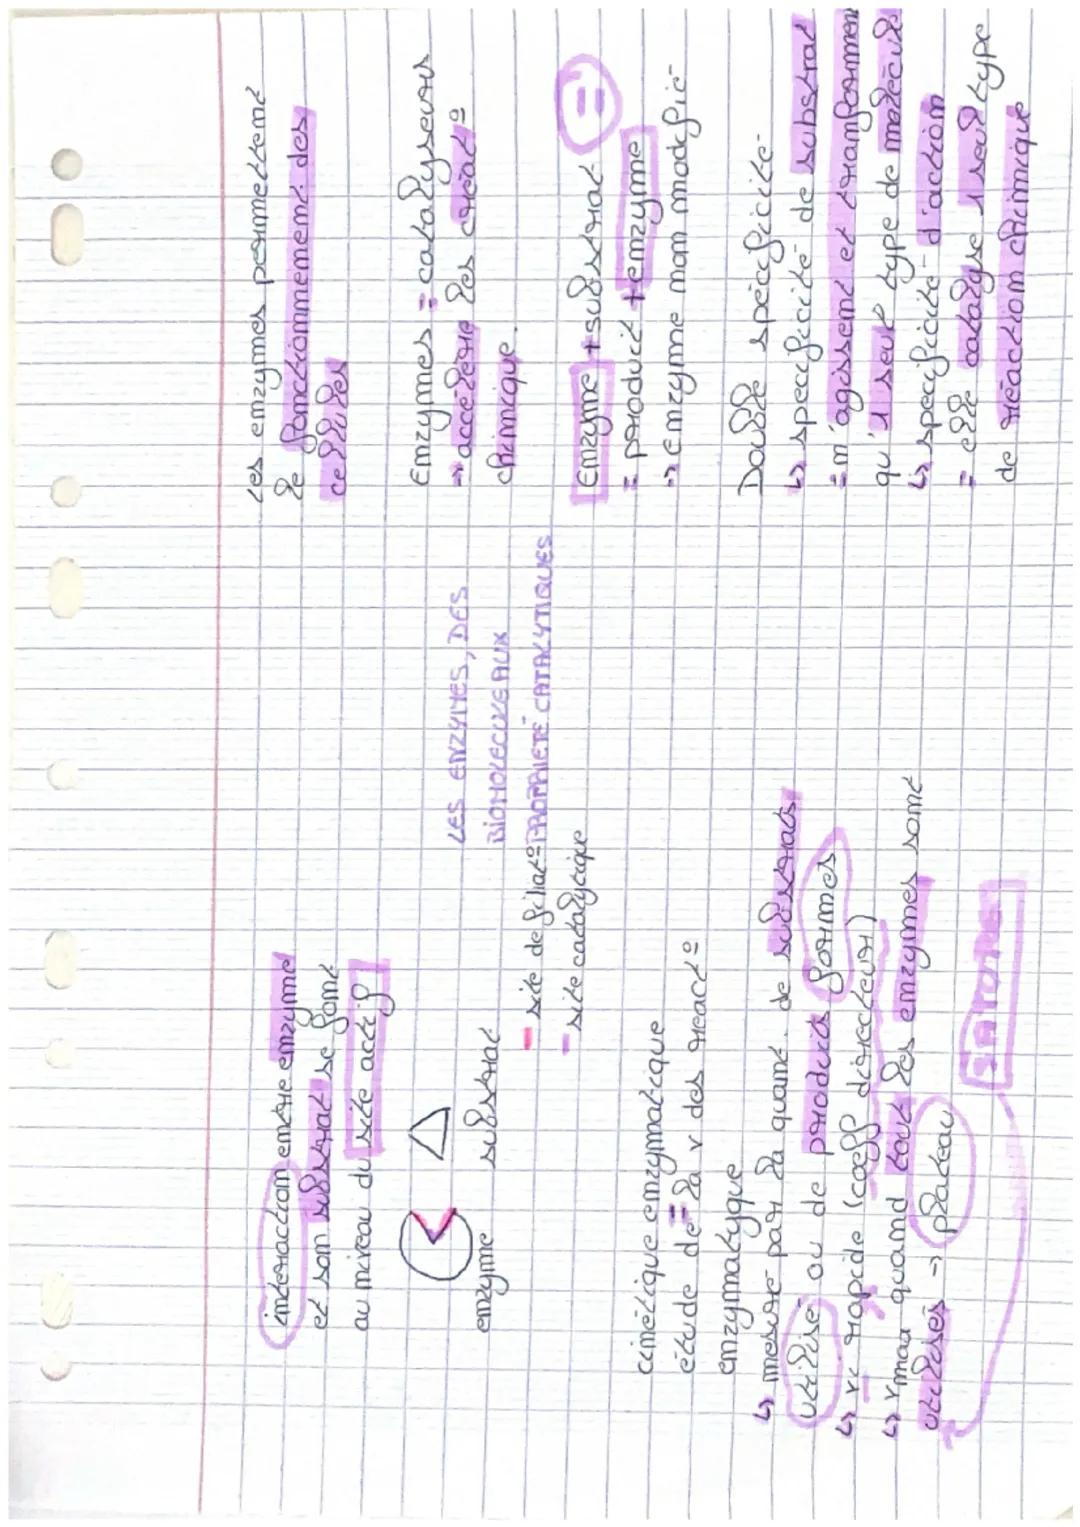 LES ENZYMES, DES
BIOMOLECULE AUX
PROPRIETE CATALYTIQUES
interaction entre enzyme
et son substrat se font
au niveau du site actif
enzyme substrat
- site de fixat°
- site catalytique
cinétique enzymatique
étude de = la v des react°
enzymatyque
↳ mesuré par la quant. de substrats
utilisé ou de produits formés
↳ vi rapide (coeff directeur)
↳ vmax quand tout les enzymes sont
utilisés → plateau
SATURÉ
Les enzymes permettent
le fonctionnement des
cellules
Enzymes = catalyseurs
→ accélère les créat°
chimique.
Enzyme + substrat =
= produit + enzyme
→ enzyme non modifié
Double spécificité
↳ spécificité de substrat
= n'agissent et transforment
qu'1 seul type de molécule
↳ spécificité d'action
= elle catalyse 1 seul type
de réaction chimique